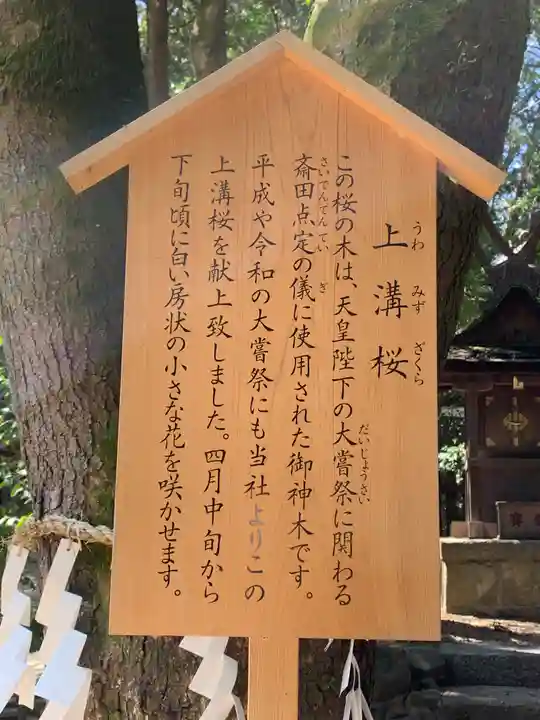 上溝桜
うわ みず ざくら
この桜の木は、天皇陛下の大嘗祭に関わる
だいじょうさい
斎田点定の儀に使用された御神木です。
さいでんてんてい ぎ
平成や令和の大嘗祭にも当社よりこの
上溝桜を献上致しました。四月中旬から
下旬頃に白い房状の小さな花を咲かせます。